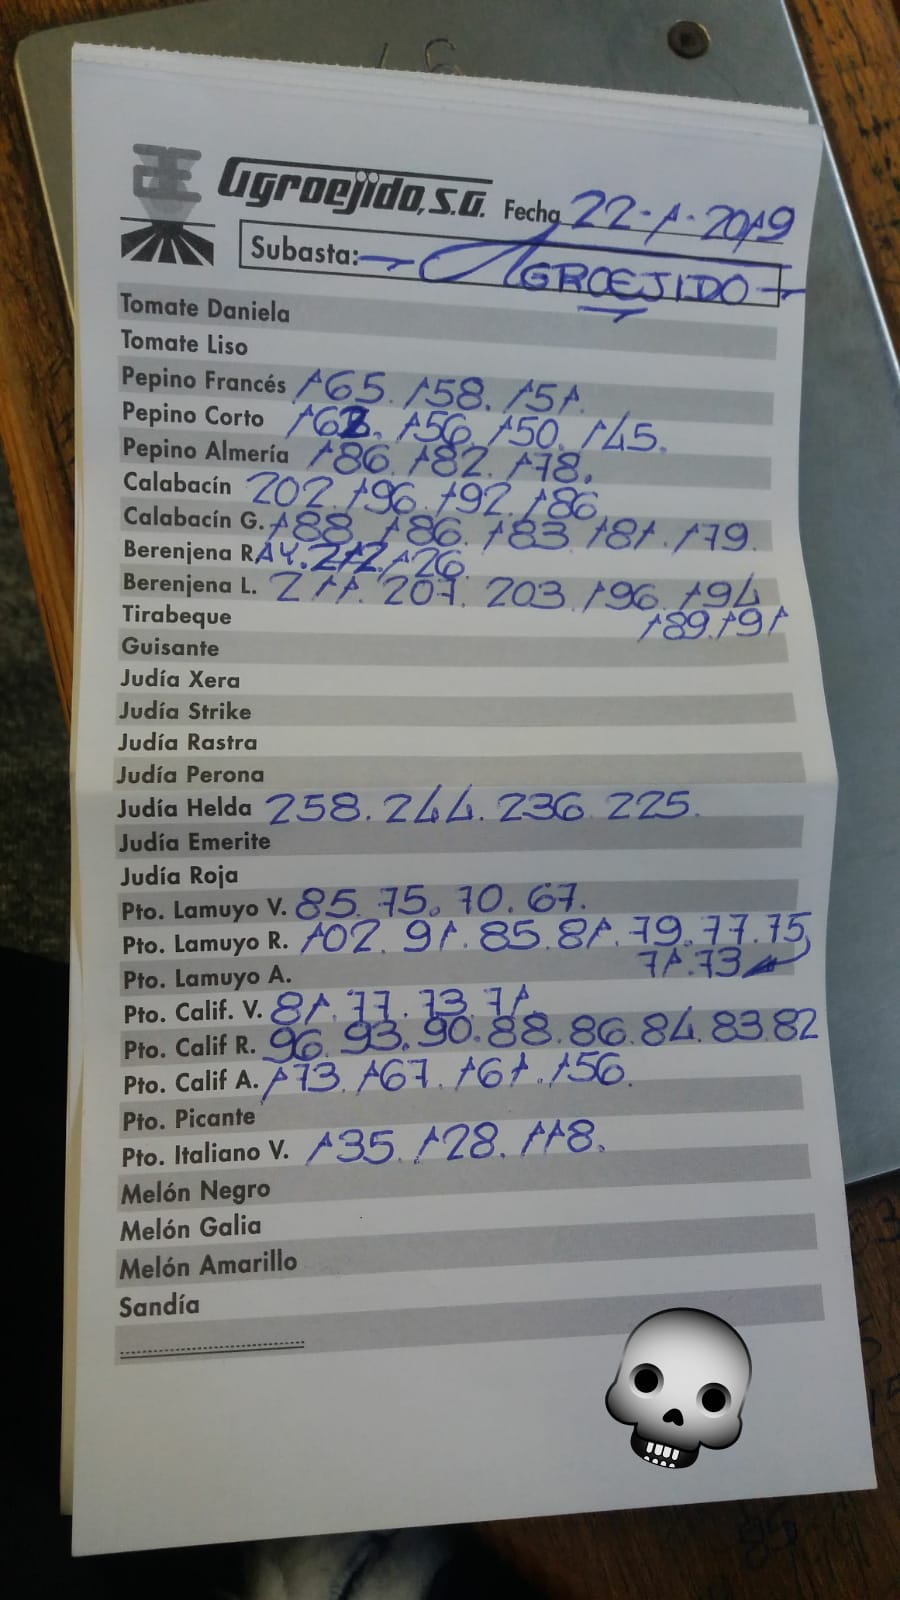 Agroejido, S.A. Fecha 22-1-2019
Subasta: AGROEJIDO
Tomate Daniela
Tomate Liso
Pepino Francés 165. 158. 151.
Pepino Corto 162. 156. 150. 145.
Pepino Almería 186. 182. 178.
Calabacín 202. 196. 192. 186
Calabacín G. 188. 186. 183. 181. 179.
Berenjena RAY. 212. 126.
Berenjena L. 211. 207. 203. 196. 194
189. 191
Tirabeque
Guisante
Judía Xera
Judía Strike
Judía Rastra
Judía Perona
Judía Helda 258. 244. 236. 225.
Judía Emerite
Judía Roja
Pto. Lamuyo V. 85. 75. 70. 67.
Pto. Lamuyo R. 102. 91. 85. 81. 79. 77. 75
71. 73
Pto. Lamuyo A.
Pto. Calif. V. 81. 77. 73. 71.
Pto. Calif R. 96. 93. 90. 88. 86. 84. 83. 82
Pto. Calif A. 173. 167. 161. 156.
Pto. Picante
Pto. Italiano V. 135. 128. 118.
Melón Negro
Melón Galia
Melón Amarillo
Sandía